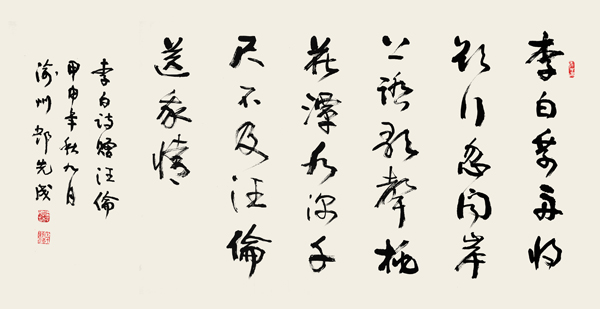 李白乘舟将
欲行忽闻岸
上踏歌聲桃
花潭水深千
尺不及汪倫
送我情
李白诗赠汪倫
甲申年秋九月
渝州 先成